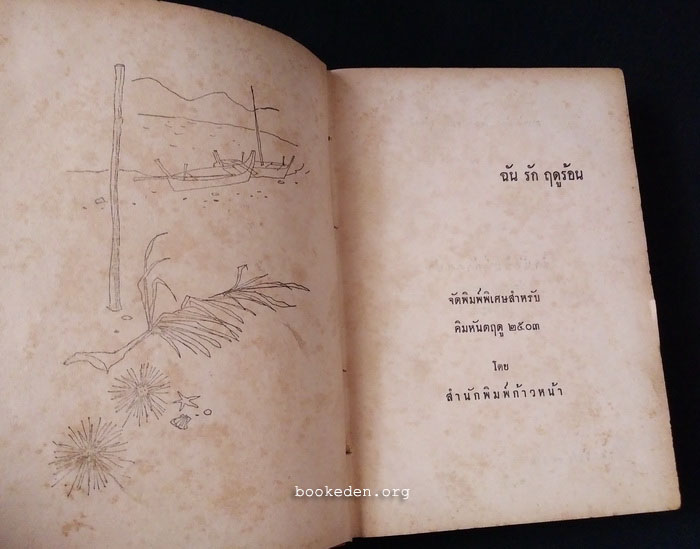 ฉัน รัก ฤดูร้อน
จัดพิมพ์พิเศษสำหรับ
คิมหันตฤดู ๒๕๐๓
โดย
สำนักพิมพ์ก้าวหน้า
bookeden.org